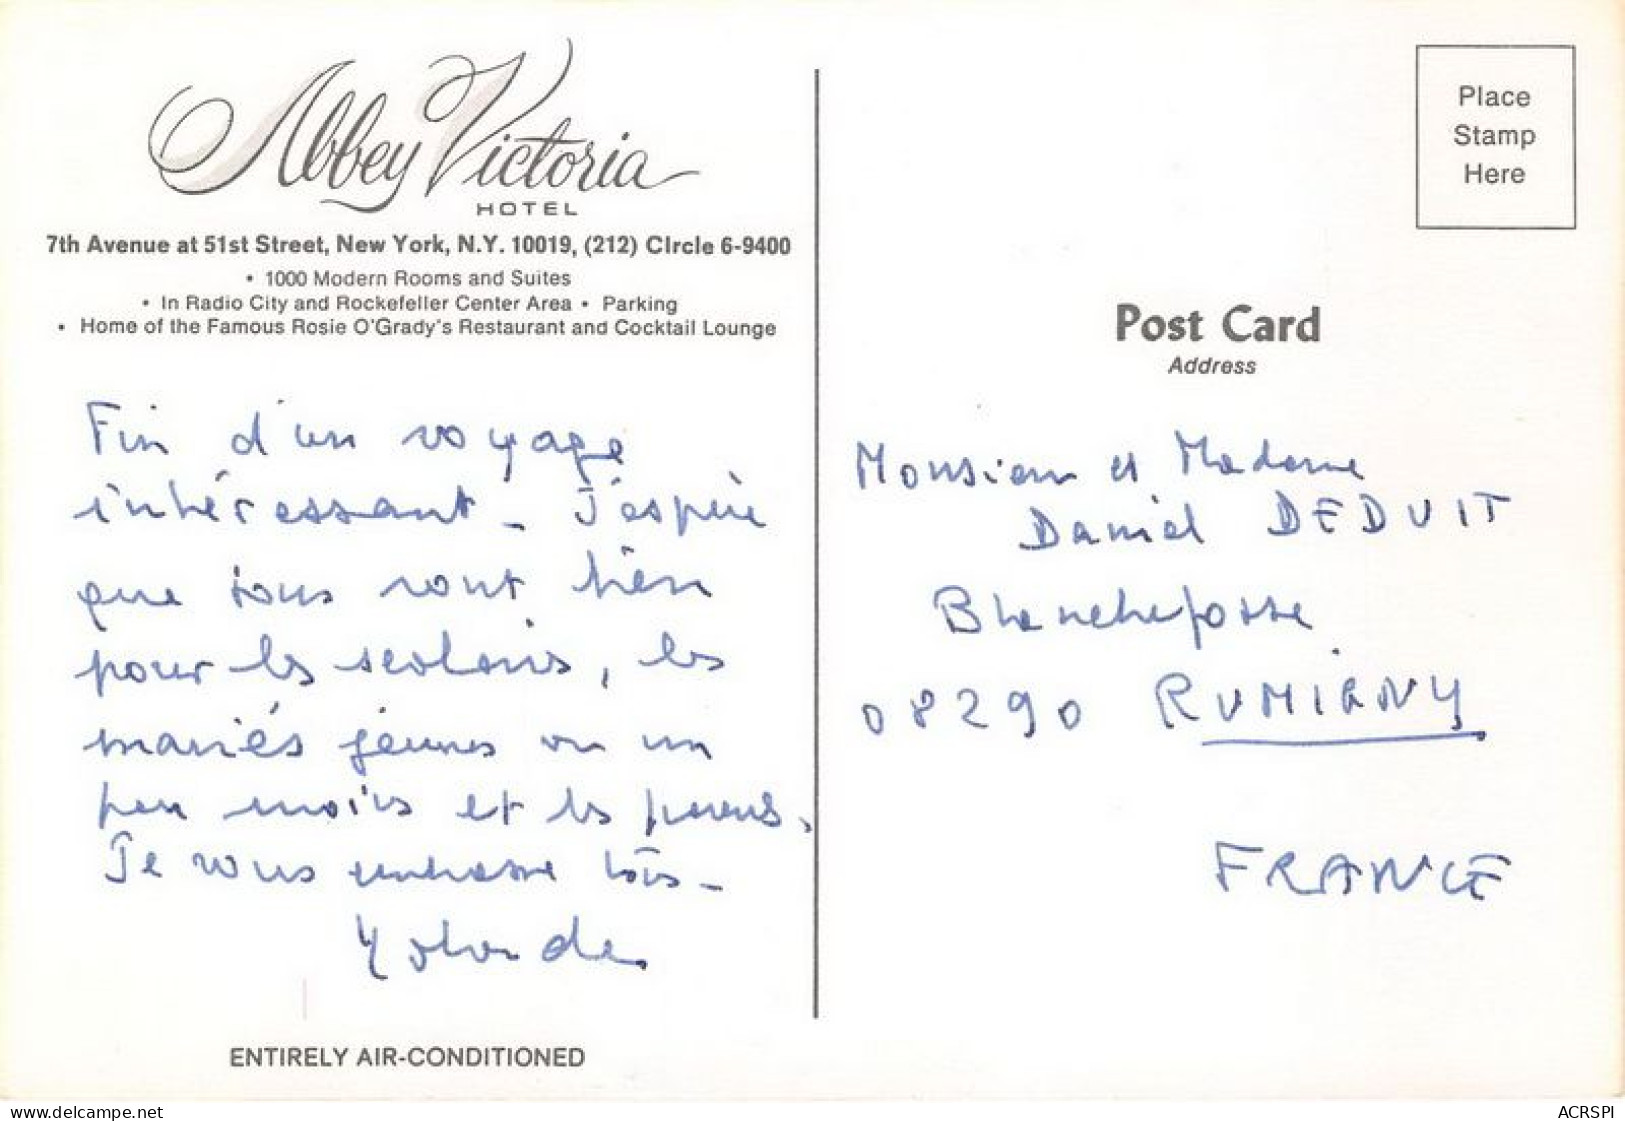 Abbey Victoria
HOTEL
7th Avenue at 51st Street, New York, N.Y. 10019, (212) CIrcle 6-9400
• 1000 Modern Rooms and Suites
• In Radio City and Rockefeller Center Area • Parking
• Home of the Famous Rosie O'Grady's Restaurant and Cocktail Lounge
Fin d'un voyage
intéressant - J'espère
que tous vont bien
pour les scolaris, les
mariés jeunes ou un
peu moins et les parents.
Je vous embrasse tous -
Yolande
ENTIRELY AIR-CONDITIONED
Place
Stamp
Here
Post Card
Address
Monsieur et Madame
Daniel DEDUIT
Blanchefosse
08290 RUMIGNY
FRANCE
www.delcampe.net
ACRSPI